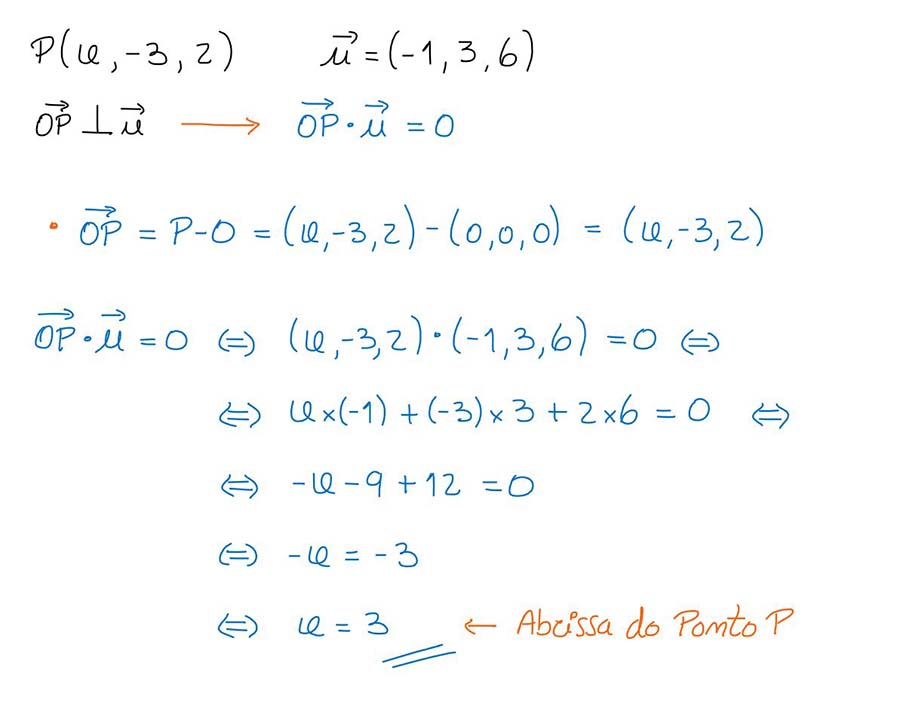 P(k, -3, 2) \vec{u} = (-1, 3, 6)
\vec{OP} ⊥ \vec{u} → \vec{OP} · \vec{u} = 0
• \vec{OP} = P - O = (k, -3, 2) - (0, 0, 0) = (k, -3, 2)
\vec{OP} · \vec{u} = 0 ⇔ (k, -3, 2) · (-1, 3, 6) = 0 ⇔
⇔ k × (-1) + (-3) × 3 + 2 × 6 = 0 ⇔
⇔ -k - 9 + 12 = 0
⇔ -k = -3
⇔ k = 3 ← Abcissa do Ponto P